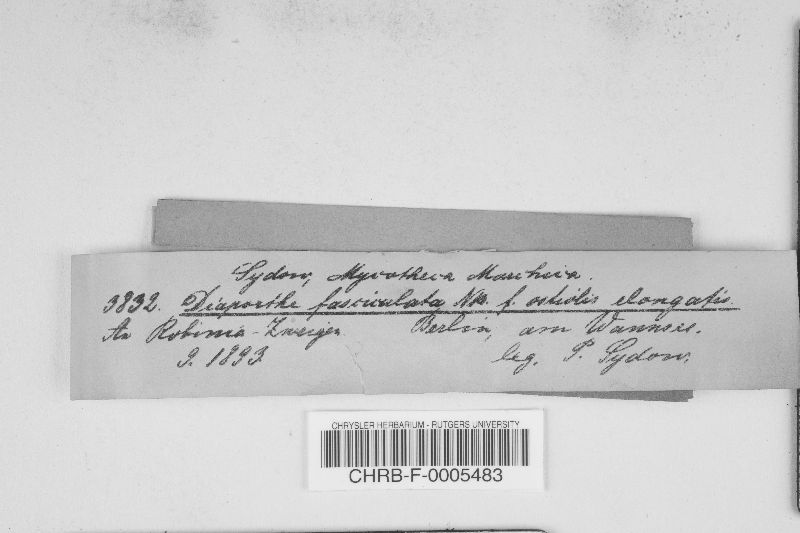 Sydow, Mycotheca Marchica.
3832. Diaporthe fasciculata Nke. f. ostiolis elongatis.
An Robinia-Zweigen Berlin, am Wannsee.
9. 1893. leg. P. Sydow.
CHRYSLER HERBARIUM - RUTGERS UNIVERSITY
CHRB-F-0005483